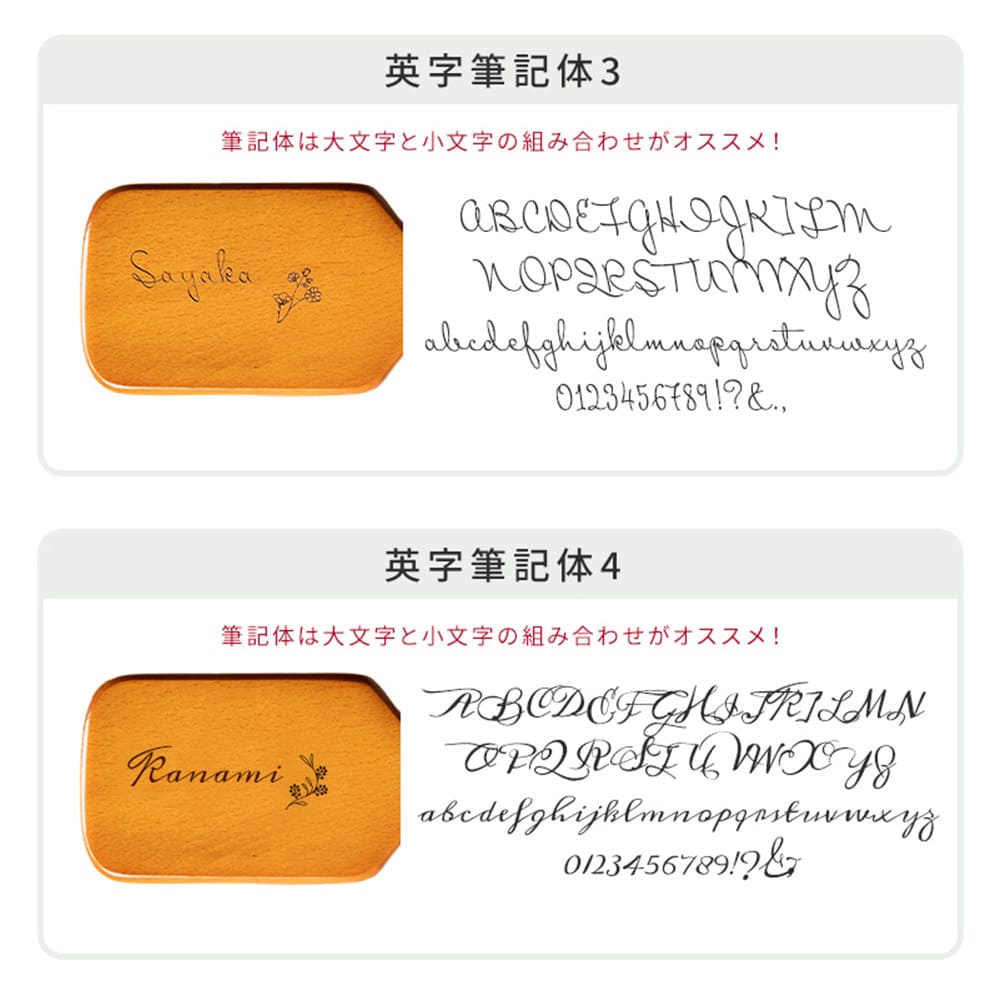 英字筆記体3
筆記体は大文字と小文字の組み合わせがオススメ!
Sayaka
ABCDEFGHIJKLM
NOPQRSTUVWXYZ
abcdefghijklmnopqrstuvwxyz
0123456789!?&.,
英字筆記体4
筆記体は大文字と小文字の組み合わせがオススメ!
Kanami
ABCDEFGHIJKLMN
OPQRSTUVWXYZ
abcdefghijklmnopqrstuvwxyz
0123456789!?&